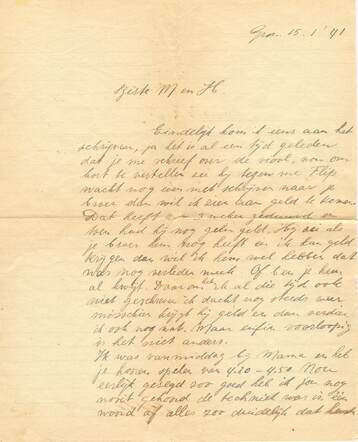 Gron. 15.1.'41
Beste M en H
Eindelijk kom ik eens aan het
schrijven, ja het is al een tijd geleden
dat je me schreef over de viool, nou om
kort te vertellen zei hij tegen me Flip
wacht nog even met schrijven naar je
broer dan wil ik eerst aan geld te komen
Dat heeft 2 - 3 weken geduurd en
toen had hij nog geen geld. Hij zei als
je broer hem nog heeft en ik kan geld
krijgen dan wil ik hem wel hebben dat
was nog verleden week. Of ben je hem
al kwijt. Daarom heb ik al die tijd ook
niet geschreven ik dacht nog steeds weer
misschien krijgt hij geld en dan
ik ook nog wat. Maar enfin voorloopig
is het niet anders.
Ik was vanmiddag bij Mama en heb
je hooren spelen van 4.20 - 4.50 Nou
eerlijk gezegd zoo goed heb ik jou nog
nooit gehoord de techniek was in één
woord af alles zoo duidelijk dat